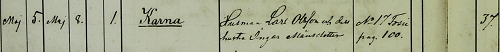 Maj 5. Maj 8. 1. Karna Husman Lars Olsson och dess N:o 17 Tosie 37
hustru Inger Månsdotter pag. 100.